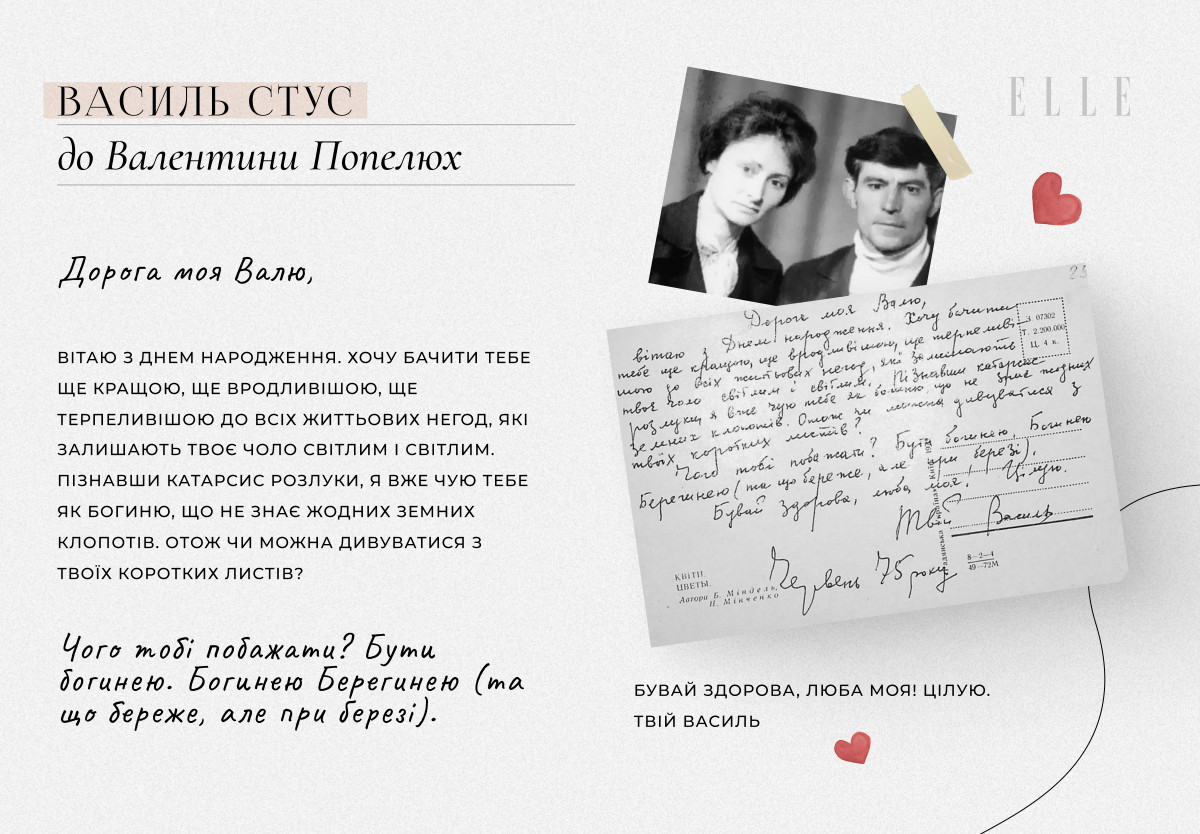 ВАСИЛЬ СТУС
до Валентини Попелюх
ELLE
Дорога моя Валю,
ВІТАЮ З ДНЕМ НАРОДЖЕННЯ. ХОЧУ БАЧИТИ ТЕБЕ
ЩЕ КРАЩОЮ, ЩЕ ВРОДЛИВІШОЮ, ЩЕ
ТЕРПЕЛИВІШОЮ ДО ВСІХ ЖИТТЬОВИХ НЕГОД, ЯКІ
ЗАЛИШАЮТЬ ТВОЄ ЧОЛО СВІТЛИМ І СВІТЛИМ.
ПІЗНАВШИ КАТАРСИС РОЗЛУКИ, Я ВЖЕ ЧУЮ ТЕБЕ
ЯК БОГИНЮ, ЩО НЕ ЗНАЄ ЖОДНИХ ЗЕМНИХ
КЛОПОТІВ. ОТОЖ ЧИ МОЖНА ДИВУВАТИСЯ З
ТВОЇХ КОРОТКИХ ЛИСТІВ?
Чого тобі побажати? Бути
богинею. Богинею Берегинею (та
що береже, але при березі).
23
Дорога моя Валю,
вітаю з Днем народження. Хочу бачити
тебе ще кращою, ще вродливішою, ще терпеливі-
шою до всіх життьових негод, які залишають
твоє чоло світлим і світлим. Пізнавши катарсис
розлуки, я вже чую тебе як богиню, що не знає жодних
земних клопотів. Отож чи можна дивуватися з
твоїх коротких листів?
Чого тобі побажати? Бути богинею, Богинею
Берегинею (та що береже, але при березі).
Бувай здорова, люба моя! Цілую.
Твій Василь
Червень 75 року
З. 07302
Т. 2.200.000
Ц. 4 к.
КВІТИ.
ЦВЕТЫ.
Автори Б. Міндель,
П. Мінченко
8—2—4
49—72М
БУВАЙ ЗДОРОВА, ЛЮБА МОЯ! ЦІЛУЮ.
ТВІЙ ВАСИЛЬ